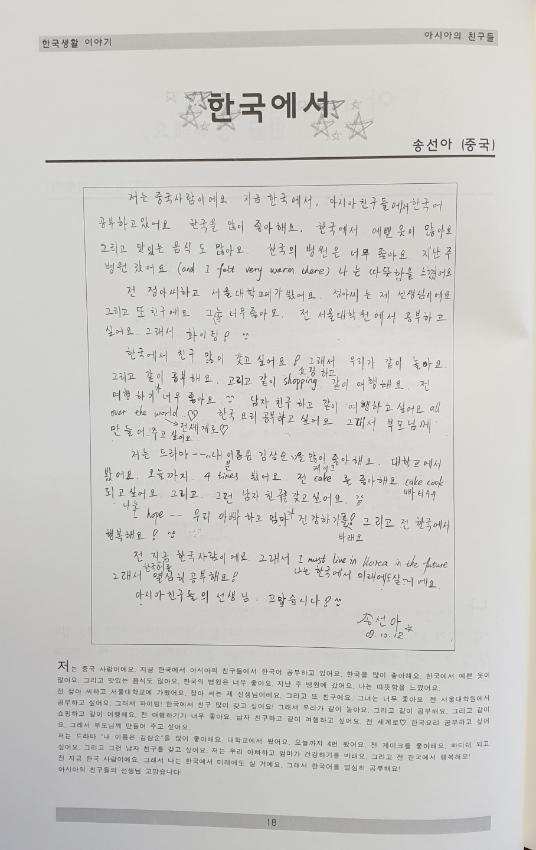 한국생활 이야기
아시아의 친구들
한국에서
송선아 (중국)
저는 중국사람이에요 지금 한국에서, 아시아친구들에서 한국어
공부하고있어요 한국을 많이 좋아해요. 한국에서 예쁜 옷이 많아요
그리고 맛있는 음식도 많아요. 한국의 병원은 너무 좋아요. 지난 주
병원 갔어요 (and I felt very warm there) 나는 따뜻함을 느꼈어요
전 정아씨하고 서울대학교에 가봤어요. 정아씨는 제 선생님이에요
그리고 또 친구에요 그녀는 너무좋아요. 전 서울대학원에서 공부하고
싶어요. 그래서 화이팅!
한국에서 친구 많이 갖고 싶어요! 그래서 우리가 같이 놀아요
쇼핑하고
그리고 같이 공부해요. 그리고 같이 shopping 같이 여행해요. 전
여행하기 너무 좋아요 남자 친구하고 같이 여행하고 싶어요 all
over the world ♡ 한국 요리 공부하고 싶어요 그래서 부모님께
전세계로♡
만들어 주고 싶어요
저는 드라마 --- 내 이름은 김삼순 을 많이 좋아해요. 대학교에서
번 케이크
봤어요. 오늘까지 4 times 봤어요. 전 cake 를 좋아해요 cake cook
되고싶어요. 그리고. 그런 남자 친구를 갖고싶어요.
나는
I hope -- 우리 아빠 하고 엄마 건강하기를! 그리고 전 한국에서
바래요
행복해요!
전 지금 한국사람이에요. 그래서 I must live in Korea in the future
한국어를 나는 한국에서 미래에도 살 거예요.
그래서 열심히 공부해요!
아시아친구들의 선생님. 고맙습니다!
송선아
09.10.12
저는 중국 사람이에요. 지금 한국에서 아시아의 친구들에서 한국어 공부하고 있어요. 한국을 많이 좋아해요. 한국에서 예쁜 옷이
많아요. 그리고 맛있는 음식도 많아요. 한국의 병원은 너무 좋아요. 지난 주 병원에 갔어요. 나는 따뜻함을 느꼈어요.
전 정아 씨하고 서울대학교에 가봤어요. 정아 씨는 제 선생님이에요. 그리고 또 친구에요. 그녀는 너무 좋아요. 전 서울대학원에서
공부하고 싶어요. 그래서 화이팅! 한국에서 친구 많이 갖고 싶어요! 그래서 우리가 같이 놀아요. 그리고 같이 공부해요. 그리고 같이
쇼핑하고 같이 여행해요. 전 여행하기가 너무 좋아요. 남자 친구하고 같이 여행하고 싶어요. 전 세계로♡ 한국요리 공부하고 싶어
요. 그래서 부모님께 만들어 주고 싶어요.
저는 드라마 "내 이름은 김삼순"을 많이 좋아해요. 대학교에서 봤어요. 오늘까지 4번 봤어요. 전 케이크를 좋아해요. 파티쉐 되고
싶어요. 그리고 그런 남자 친구를 갖고 싶어요. 저는 우리 아빠하고 엄마가 건강하기를 바래요. 그리고 전 한국에서 행복해요!
전 지금 한국 사람이에요. 그래서 나는 한국에서 미래에도 살 거예요. 그래서 한국어를 열심히 공부해요!
아시아의 친구들의 선생님 고맙습니다!
18